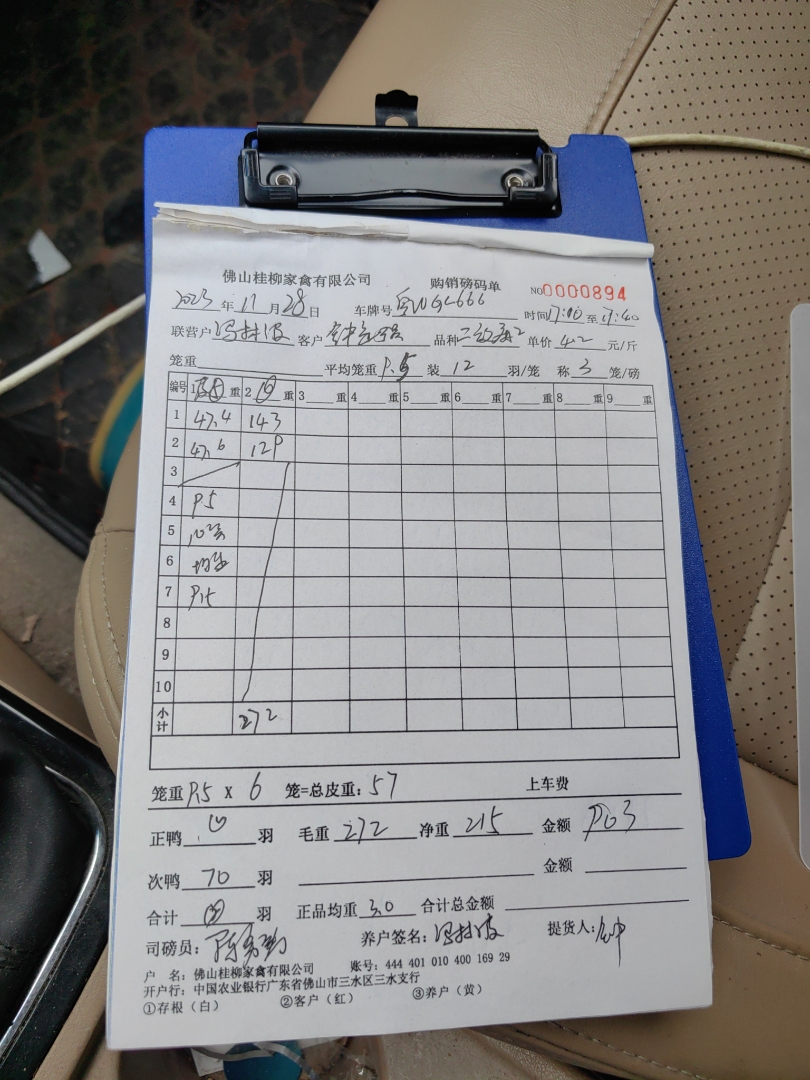 佛山桂柳家禽有限公司 购销磅码单 NO0000894
2023年11月28日 车牌号 时间17:10至17:40
联营户 客户 品种 单价4.2元/斤
笼重 平均笼重9.5装12羽/笼 称3笼/磅
编号 1 重 2 重 3 重 4 重 5 重 6 重 7 重 8 重 9 重
1 47.4 143
2 47.6 129
3
4 9.5
5
6
7
8
9
10
小计 272
笼重9.5 X 6 笼=总皮重:57 上车费
正鸭 羽 毛重272 净重215 金额903
次鸭70羽 金额
合计 羽 正品均重3.0 合计总金额
司磅员: 养户签名: 提货人:
户 名:佛山桂柳家禽有限公司 账号:444 401 010 400 169 29
开户行:中国农业银行广东省佛山市三水区三水支行
①存根(白) ②客户(红) ③养户(黄)